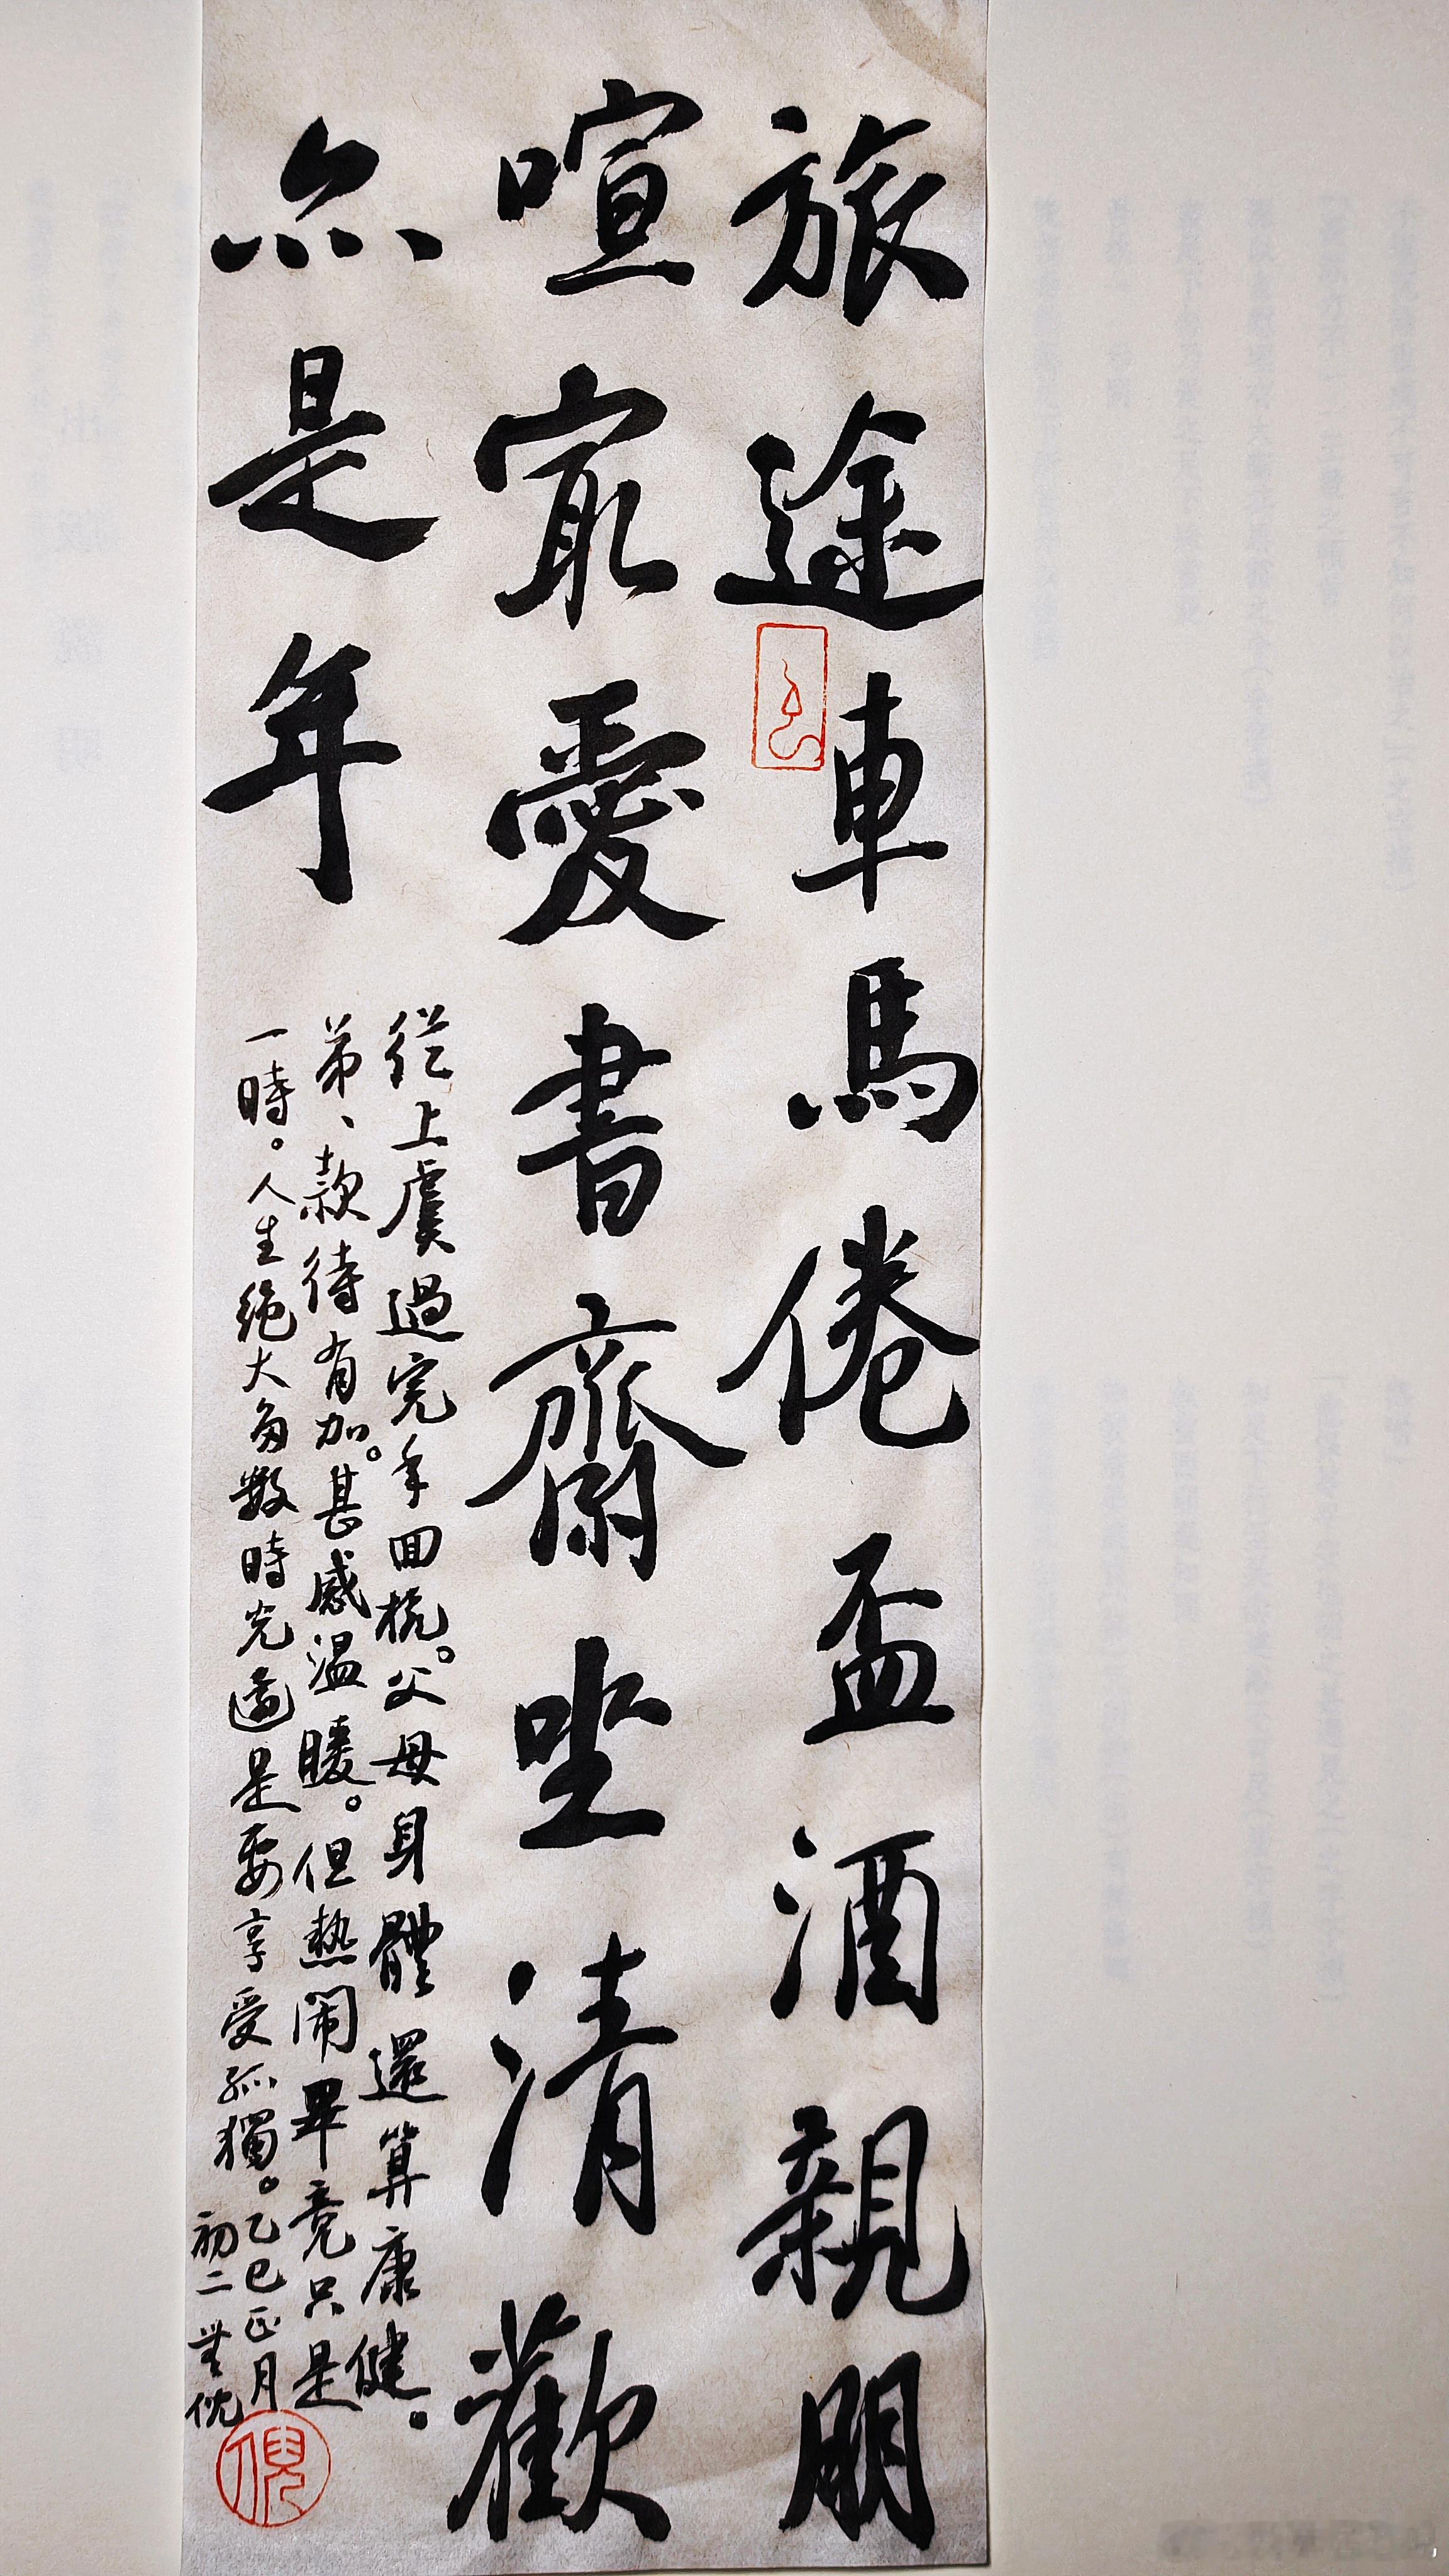 旅途車馬倦盃酒親朋
喧寂愛書齋坐清歡
亦是年
從上虞過完年回杭。父母身體還算康健。
弟、款待有加。甚感温暖。但熱闹畢竟只是
一時。人生絕大多數時光還是要享受孤獨。乙巳正月
初二
倪